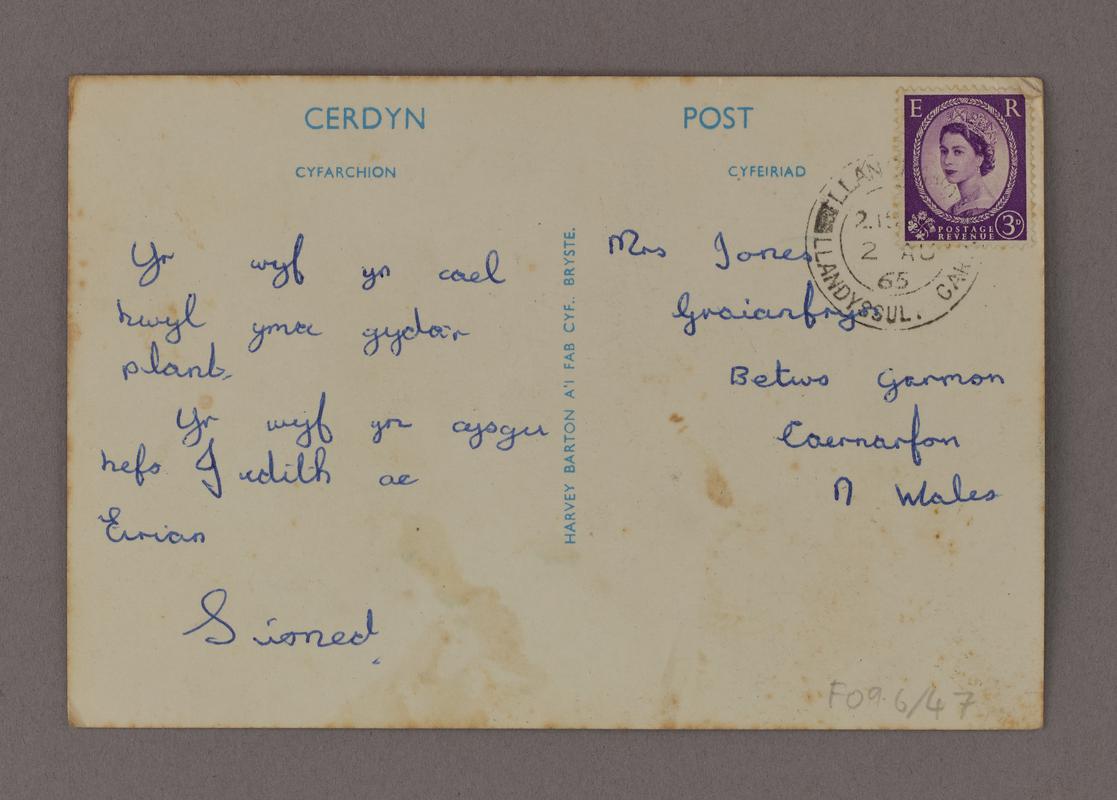 CERDYN POST
CYFARCHION
CYFEIRIAD
Yr wyf yn cael
hwyl yma gyda'r
plant.
Yr wyf yn cysgu
hefo Judith ac
Eirian
Sioned.
HARVEY BARTON A'I FAB CYF., BRYSTE.
Mrs Jones
Graianfryn
Betws Garmon
Caernarfon
N Wales
E R
POSTAGE
REVENUE
3D
2.15
2 AU
65
LLANDYSSUL.
F09.6/47